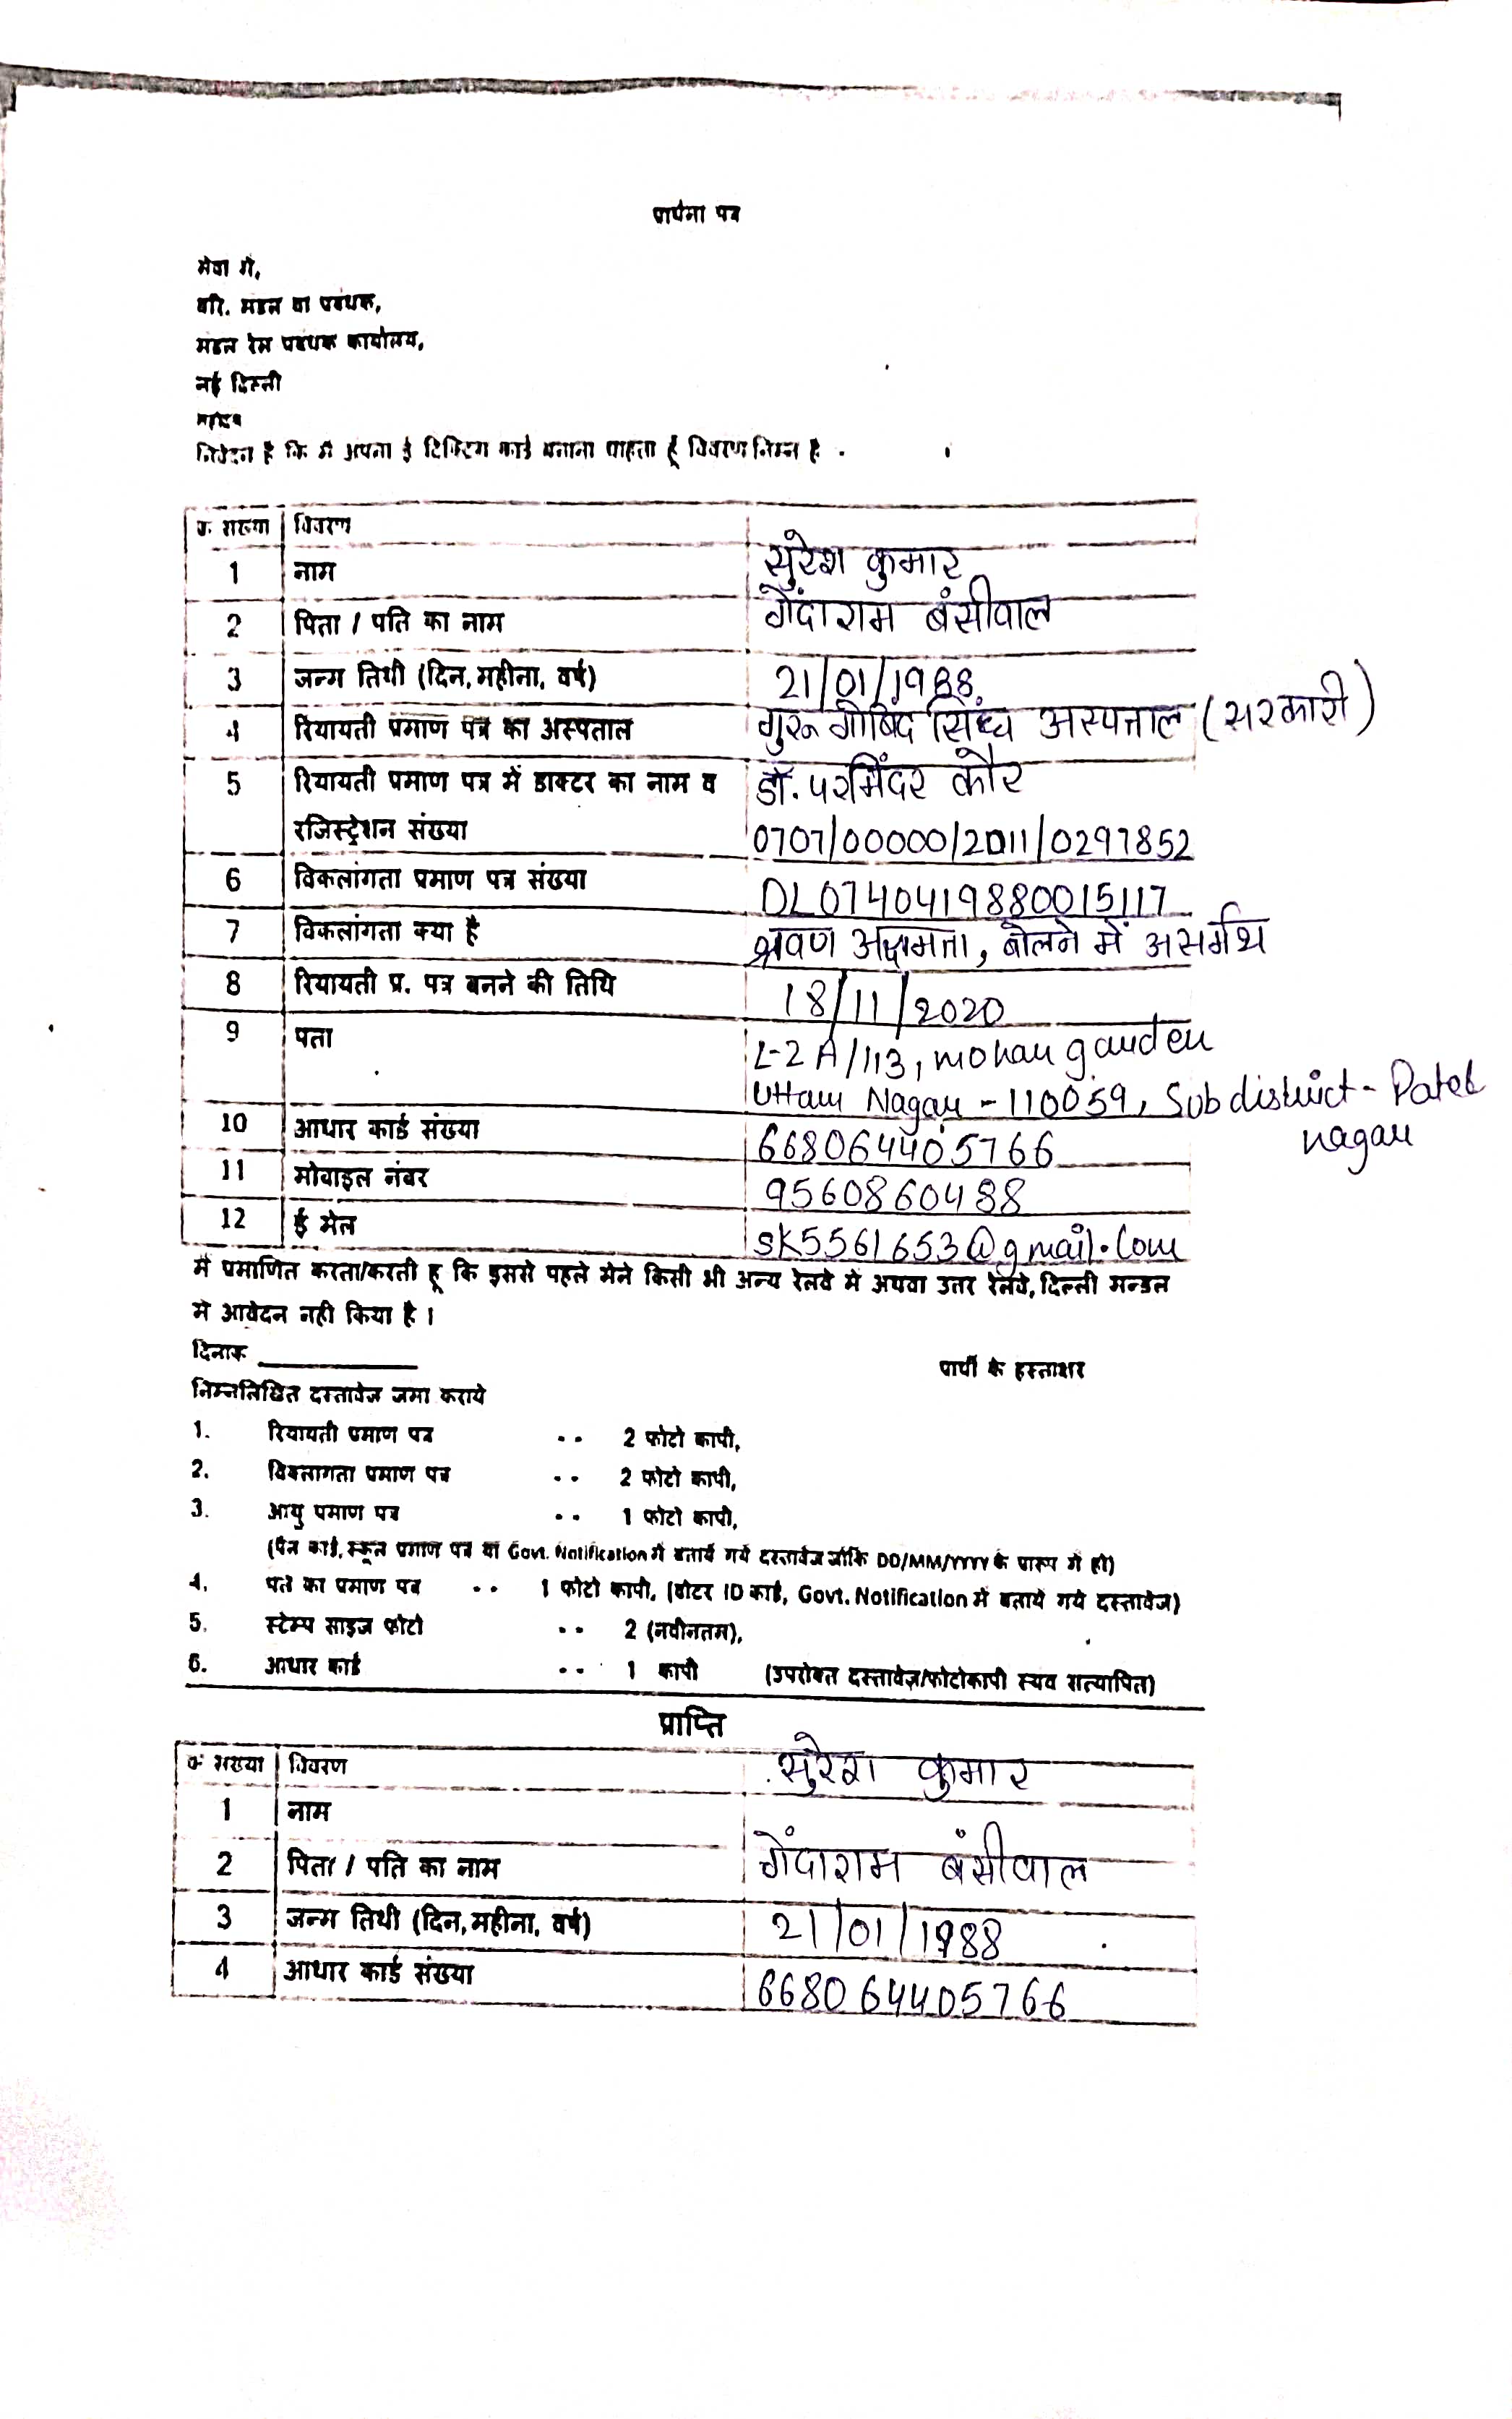 प्रार्थना पत्र
सेवा में,
वरि. मंडल वा प्रबंधक,
मंडल रेल प्रबंधक कार्यालय,
नई दिल्ली
महोदय
निवेदन है कि मैं अपना ई टिकिटिंग कार्ड बनाना चाहता हूँ विवरण निम्न है .
क्र. संख्या विवरण
1 नाम सुरेश कुमार
2 पिता / पति का नाम गेंदाराम बंसीवाल
3 जन्म तिथी (दिन, महीना, वर्ष) 21/01/1988
4 रियायती प्रमाण पत्र का अस्पताल गुरू गोबिंद सिंघ अस्पताल (सरकारी)
5 रियायती प्रमाण पत्र में डाक्टर का नाम व डॉ. परमिंदर कौर
रजिस्ट्रेशन संख्या 0707/00000/2011/0297852
6 विकलांगता प्रमाण पत्र संख्या DL0740419880015117
7 विकलांगता क्या है श्रवण अक्षमता, बोलने में असर्मथ
8 रियायती प्र. पत्र बनने की तिथि 18/11/2020
9 पता L-2 A/113, mohan garden
Uttam Nagar - 110059, Sub district - Patel
nagar
10 आधार कार्ड संख्या 668064405766
11 मोबाइल नंबर 9560860488
12 ई मेल sk5561653@gmail.com
मैं प्रमाणित करता/करती हू कि इससे पहले मैने किसी भी अन्य रेलवे मे अथवा उत्तर रेलवे, दिल्ली मन्डल
मे आवेदन नही किया है।
दिनांक
प्रार्थी के हस्ताक्षर
निम्नलिखित दस्तावेज जमा कराये
1. रियायती प्रमाण पत्र .. 2 फोटो कापी,
2. विकलांगता प्रमाण पत्र .. 2 फोटो कापी,
3. आयु प्रमाण पत्र .. 1 फोटो कापी,
(पैन कार्ड, स्कूल प्रमाण पत्र या Govt. Notification मे बताये गये दस्तावेज जोकि DD/MM/YYYY के प्रारूप मे हो)
4. पते का प्रमाण पत्र .. 1 फोटो कापी, (वोटर ID कार्ड, Govt. Notification मे बताये गये दस्तावेज)
5. स्टेम्प साइज फोटो .. 2 (नवीनतम),
6. आधार कार्ड .. 1 कापी (उपरोक्त दस्तावेज़/फोटोकापी स्यव सत्यापित)
प्राप्ति
क्र संख्या विवरण सुरेश कुमार
1 नाम
2 पिता / पति का नाम गेंदाराम बंसीवाल
3 जन्म तिथी (दिन, महीना, वर्ष) 21/01/1988
4 आधार कार्ड संख्या 668064405766